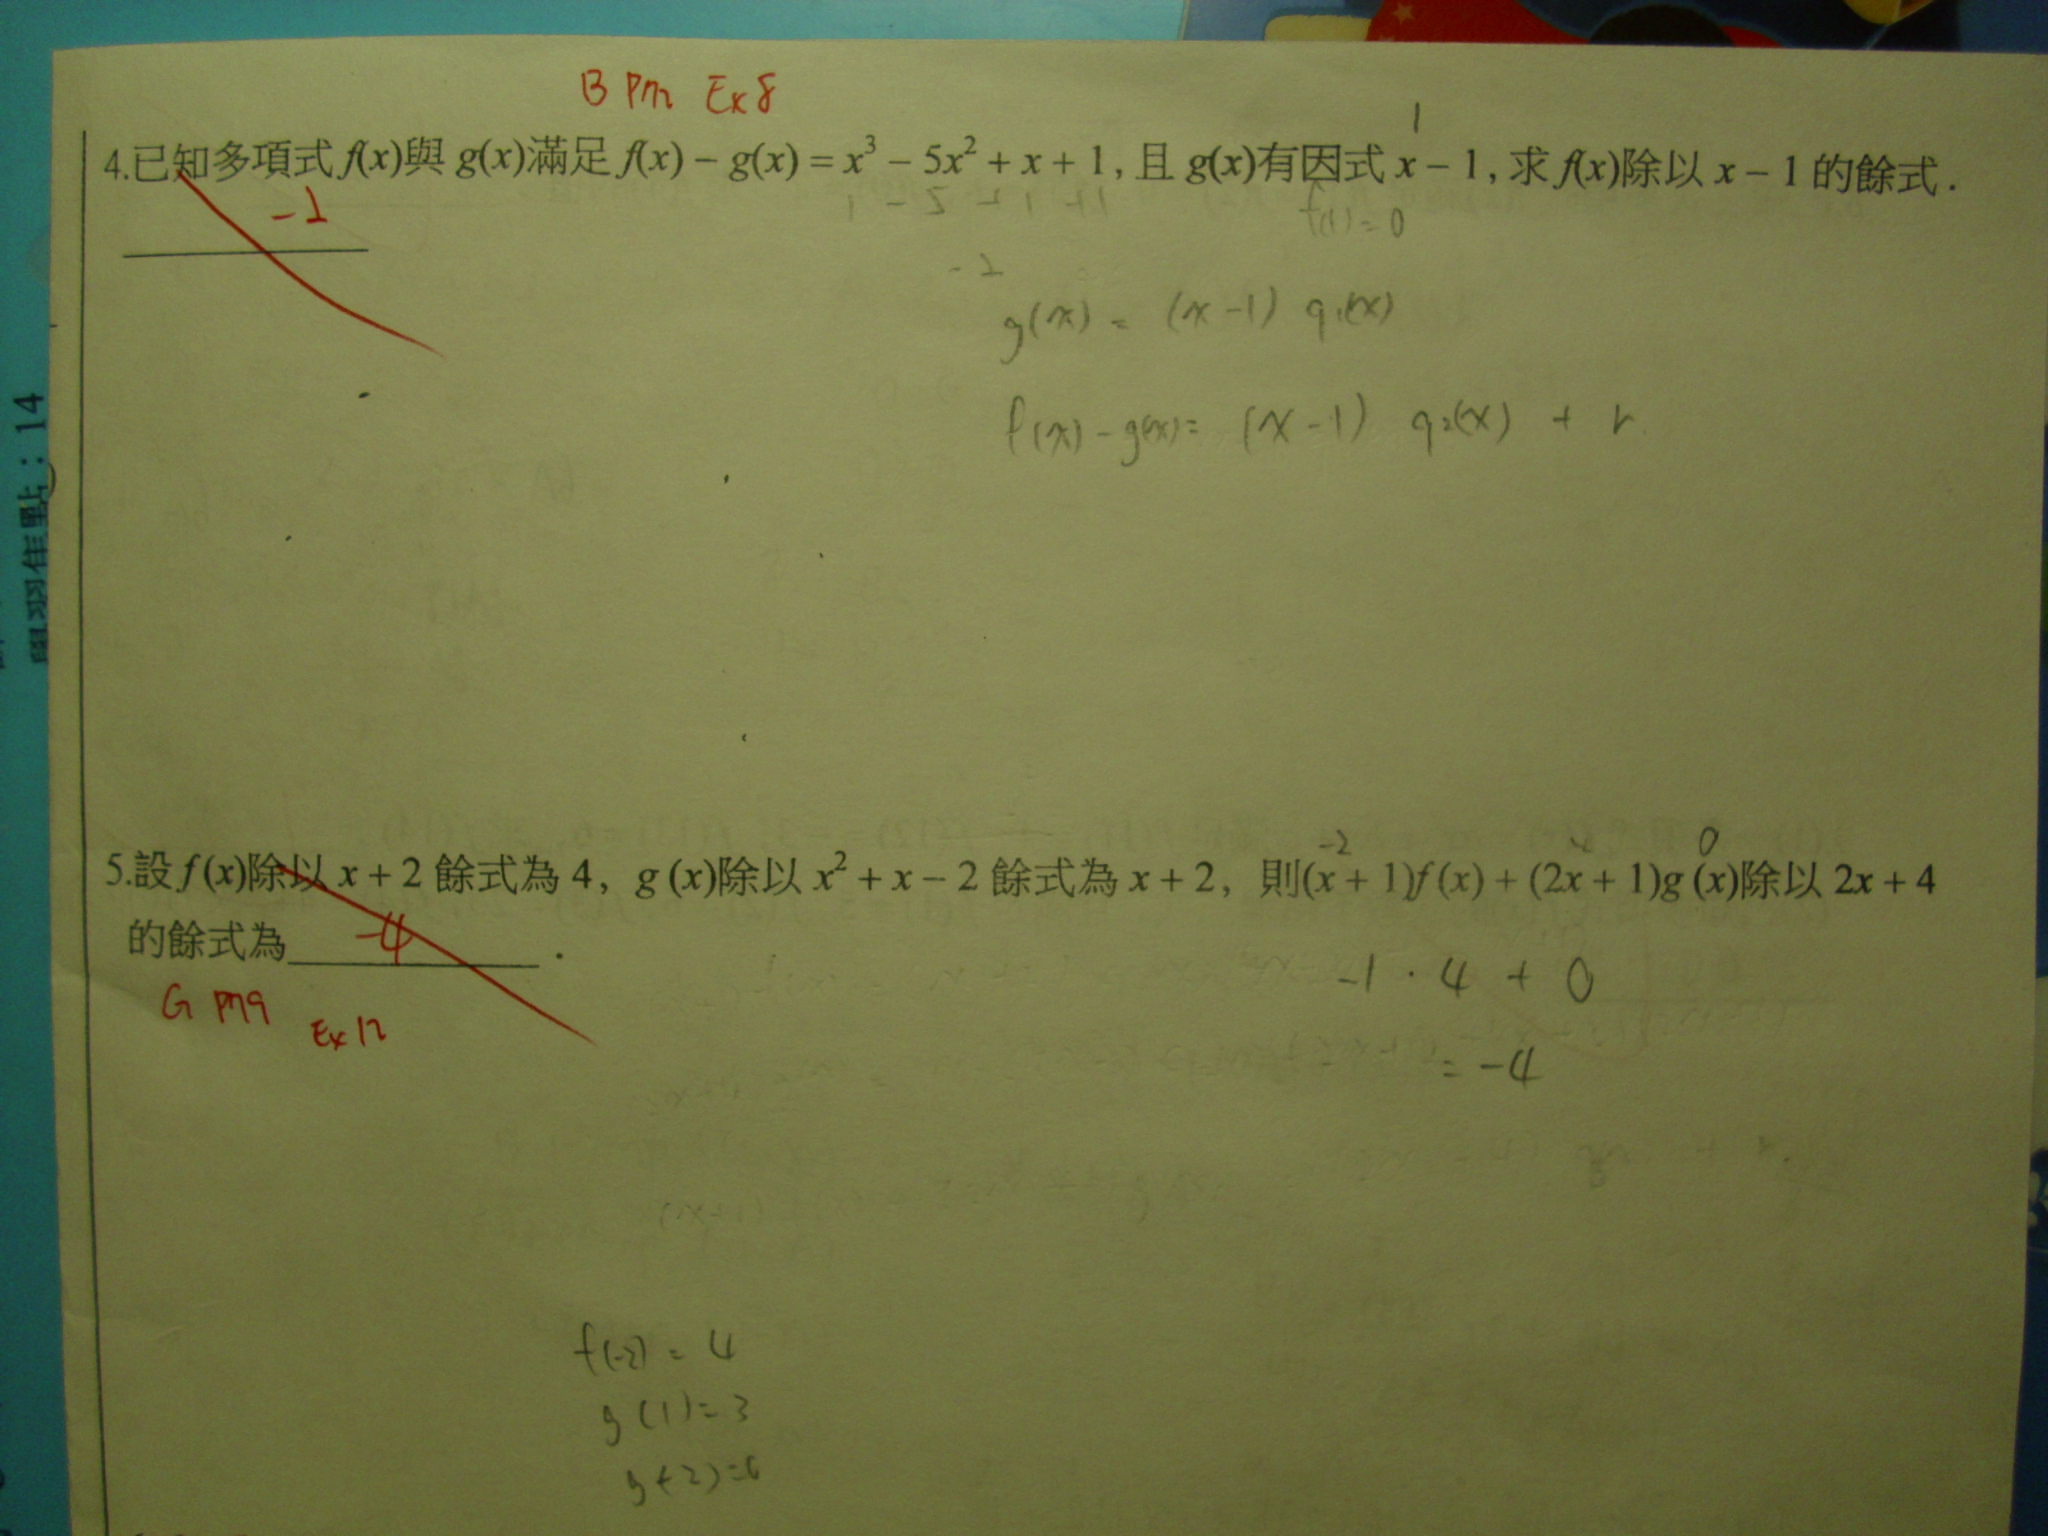 B P72 Ex 8
1
4.已知多項式 f(x)與 g(x)滿足 f(x) − g(x) = x³ − 5x² + x + 1, 且 g(x)有因式 x − 1, 求 f(x)除以 x − 1 的餘式 .
1 - 5 + 1 + 1
f(1) = 0
-2
g(x) = (x-1) q₁(x)
f(x) - g(x) = (x-1) q₂(x) + r
學習焦點：14
-2 0
5.設 f (x)除以 x + 2 餘式為 4，g (x)除以 x² + x − 2 餘式為 x + 2，則(x + 1)f (x) + (2x + 1)g (x)除以 2x + 4
的餘式為 -4 .
-1 · 4 + 0
= -4
G P79
Ex 12
f(-2) = 4
g(1) = 3